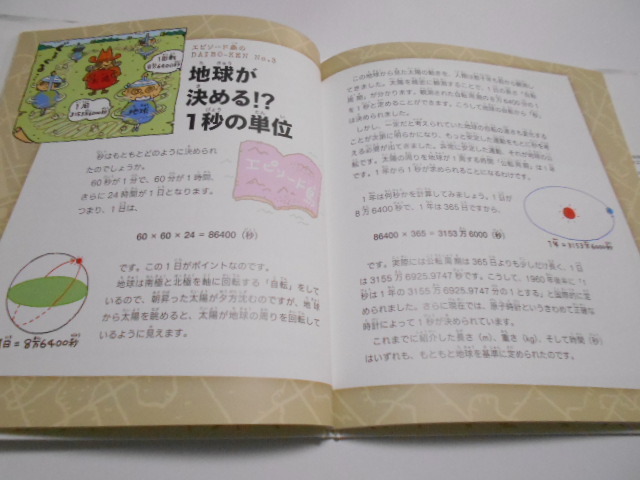 エピソード島の
DAIBO-KEN No.5
地球が
決める!?
1秒の単位
1回転
8万6400秒
1周
3153万6000秒
地球
エピソード島
秒はもともとどのように決められ
たのでしょうか。
60秒が1分で、60分が1時間、
さらに24時間が1日となります。
つまり、1日は、
60 × 60 × 24 = 86400（秒）
です。この1日がポイントなのです。
地球は南極と北極を軸に回転する「自転」をして
いるので、朝昇った太陽が夕方沈むのですが、地球
から太陽を眺めると、太陽が地球の周りを回転して
いるように見えます。
1日 = 8万6400秒
この地球から見た太陽の動きを、人間は
てきました。太陽を精密に観測することで、1日の長さ「太陽
周期」が分かります。観測された周期の8万6400分の1
を1秒と定めることができます。こうして地球の自転から「秒」
は決められました。
しかし、一定だと考えられていた地球の自転の速さも変化する
ことが次第に明らかになり、もっと安定した運動をもとに秒を考
える必要が出てきました。非常に安定した運動、それが地球の公
転です。太陽の周りを地球が1周する時間「公転周期」は1年
です。1年から1秒が求められることになるわけです。
1年は何秒かを計算してみましょう。1日が
8万6400秒で、1年は365日ですから、
86400 × 365 = 3153万6000（秒）
1年 = 3153万6000秒
です。実際には公転周期は365日よりも少しだけ長く、1日
は3155万6925.9747秒です。こうして、1960年後半に「1
秒は1年の3155万6925.9747分の1とする」と国際的に定
められました。さらに現在では、原子時計というきわめて正確な
時計によって1秒が決められています。
これまでに紹介した長さ（m）、重さ（kg）、そして時間（秒）
はいずれも、もともと地球を基準に定められたのです。